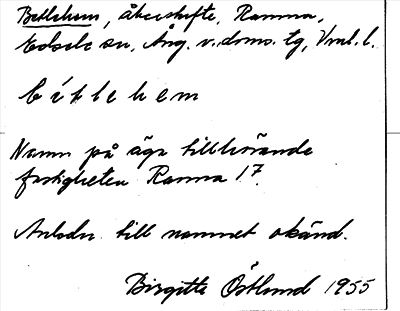 Betlehem, åkerskifte, Ramna,
Edsele sn, Ång. v. doms. tg, Vnl. l.
bétlehem
Namn på äga tillhörande
fastigheten Ramna 1⁷.
Anledn. till namnet okänd.
Birgitta Östlund 1955